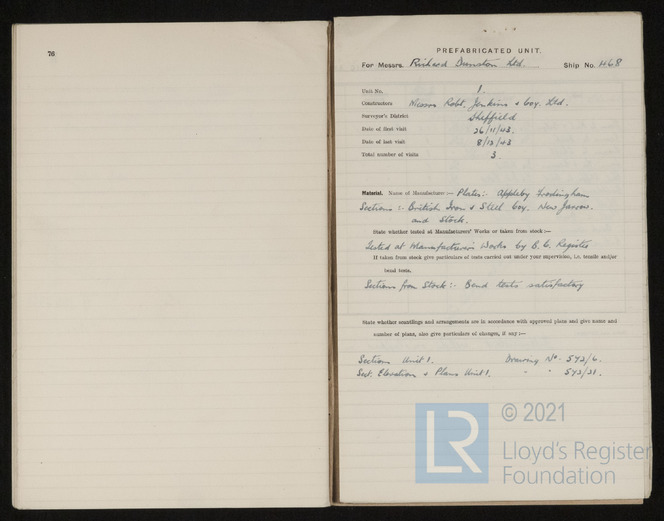 76
PREFABRICATED UNIT.
For Messrs. Richard Dunston Ltd. Ship No. 468
Unit No. 1.
Constructors Messrs Robt. Jenkins & Coy. Ltd.
Surveyor's District Sheffield
Date of first visit 26/11/43.
Date of last visit 8/12/43
Total number of visits 3.
Material. Name of Manufacturer:— Plates:- Appleby Frodingham
Sections:- British Iron & Steel Coy. New Jarrow.
and Stock.
State whether tested at Manufacturers' Works or taken from stock:—
Tested at Manufacturers Works by B. C. Register
If taken from stock give particulars of tests carried out under your supervision, i.e. tensile and/or
bend tests.
Sections from Stock:- Bend tests satisfactory
State whether scantlings and arrangements are in accordance with approved plans and give name and
number of plans, also give particulars of changes, if any:—
Sections Unit 1. Drawing No. 573/6.
Sect. Elevation & Plans Unit 1. " " 573/31.
© 2021
LR
Lloyd's Register
Foundation